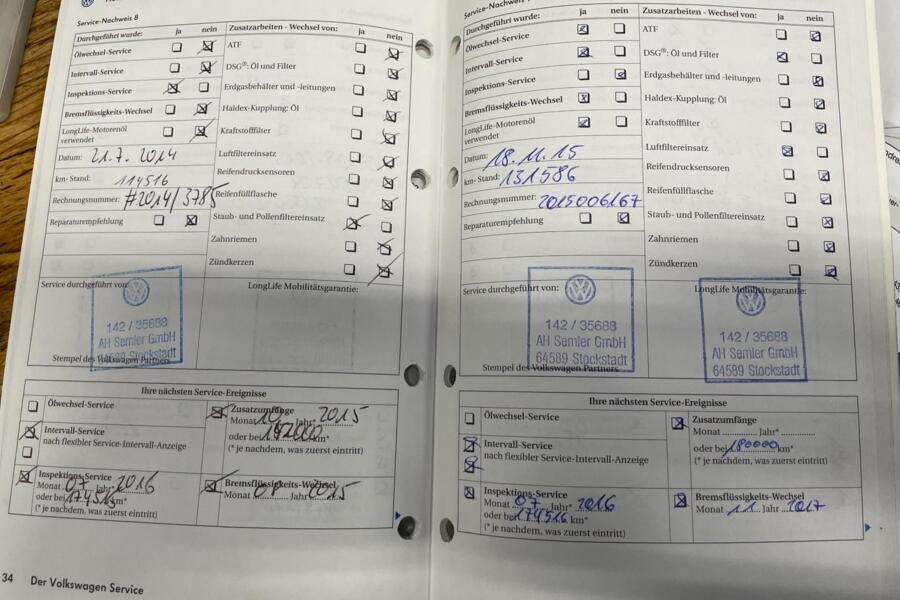 Service-Nachweis 8
Durchgeführt wurde: ja nein
Ölwechsel-Service
Intervall-Service
Inspektions-Service
Bremsflüssigkeits-Wechsel
LongLife-Motorenöl
verwendet
Datum: 21.7.2014
km- Stand: 114516
Rechnungsnummer: #2014/3785
Reparaturempfehlung
Zusatzarbeiten - Wechsel von: ja nein
ATF
DSG®: Öl und Filter
Erdgasbehälter und -leitungen
Haldex-Kupplung: Öl
Kraftstofffilter
Luftfiltereinsatz
Reifendrucksensoren
Reifenfüllflasche
Staub- und Pollenfiltereinsatz
Zahnriemen
Zündkerzen
Service durchgeführt von:
LongLife Mobilitätsgarantie:
142 / 35688
AH Semler GmbH
64589 Stockstadt
Stempel des Volkswagen Partners
Ihre nächsten Service-Ereignisse
Ölwechsel-Service
Intervall-Service
nach flexibler Service-Intervall-Anzeige
Inspektions-Service
Monat 07 Jahr* 2016
oder bei 174516 km*
(* je nachdem, was zuerst eintritt)
Zusatzumfänge
Monat 10 Jahr* 2015
oder bei km*
(* je nachdem, was zuerst eintritt)
Bremsflüssigkeits-Wechsel
Monat 07 Jahr 2015
34 Der Volkswagen Service
Service-Nachweis
Durchgeführt wurde: ja nein
Ölwechsel-Service
Intervall-Service
Inspektions-Service
Bremsflüssigkeits-Wechsel
LongLife-Motorenöl
verwendet
Datum: 18.11.15
km- Stand: 131586
Rechnungsnummer: 2015006167
Reparaturempfehlung
Zusatzarbeiten - Wechsel von: ja nein
ATF
DSG®: Öl und Filter
Erdgasbehälter und -leitungen
Haldex-Kupplung: Öl
Kraftstofffilter
Luftfiltereinsatz
Reifendrucksensoren
Reifenfüllflasche
Staub- und Pollenfiltereinsatz
Zahnriemen
Zündkerzen
Service durchgeführt von:
142 / 35688
AH Semler GmbH
64589 Stockstadt
Stempel des Volkswagen Partners
LongLife Mobilitätsgarantie:
142 / 35688
AH Semler GmbH
64589 Stockstadt
Ihre nächsten Service-Ereignisse
Ölwechsel-Service
Intervall-Service
nach flexibler Service-Intervall-Anzeige
Inspektions-Service
Monat 07 Jahr* 2016
oder bei 174516 km*
(* je nachdem, was zuerst eintritt)
Zusatzumfänge
Monat ............ Jahr* ............
oder bei 180000 km*
(* je nachdem, was zuerst eintritt)
Bremsflüssigkeits-Wechsel
Monat 11 Jahr 2017